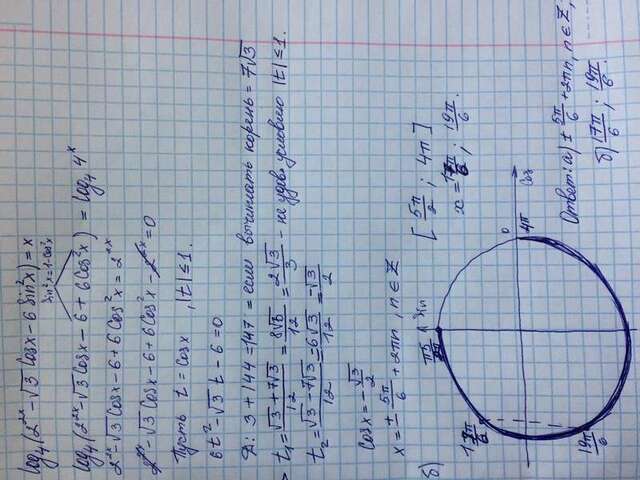 log₄(2²ˣ - √3 Cosx - 6 Sin²x) = x
Sin²x = 1 - Cos²x
log₄(2²ˣ - √3 Cosx - 6 + 6Cos²x) = log₄ 4ˣ
2²ˣ - √3 Cosx - 6 + 6Cos²x = 2²ˣ
2²ˣ - √3 Cosx - 6 + 6Cos²x - 2²ˣ = 0
Пусть t = Cosx , |t| ≤ 1.
6t² - √3 t - 6 = 0
Д: 3 + 144 = 147 = если вычитать корень = 7√3
t₁ = (√3 + 7√3)/12 = 8√3/12 = 2√3/3 - не удов. условию |t| ≤ 1.
t₂ = (√3 - 7√3)/12 = 6√3/12 = -√3/2
Cosx = -√3/2
x = ± 5π/6 + 2πn, n ∈ Z
б)
Sin
[5π/2 ; 4π]
x = 17π/6 ; 19π/6.
17π/6
0
4π
Cos
19π/6
Ответ: а) ± 5π/6 + 2πn, n ∈ Z,
б) 17π/6 ; 19π/6.